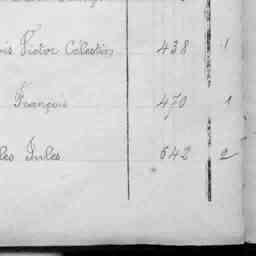 is Victor Célestin 438 1
François 470 1
les Jules 642 2